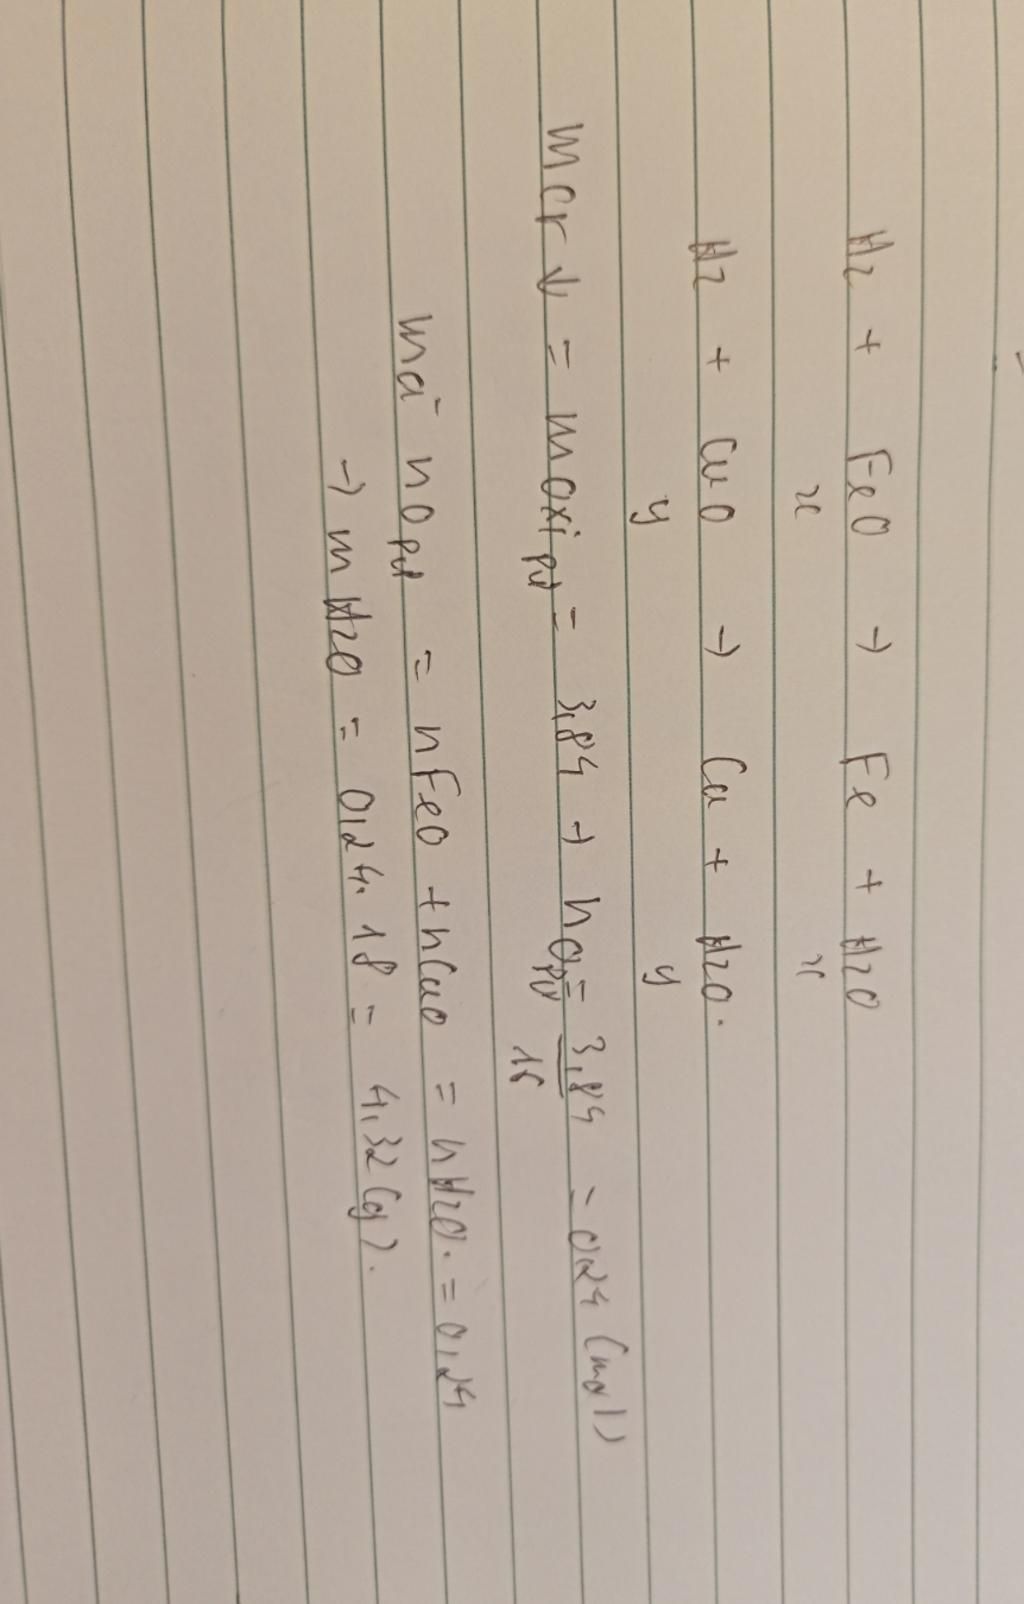 H2 + FeO → Fe + H2O
x x
H2 + CuO → Cu + H2O.
y y
mcr ↓ = m oxi pứ = 3,84 → nO pứ = 3,84 / 16 = 0,24 (mol)
mà nO pứ = nFeO + nCuO = nH2O. = 0,24
→ mH2O = 0,24. 18 = 4,32 (g).